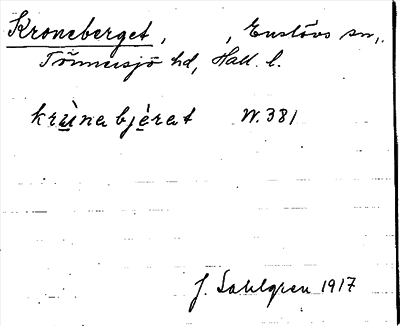 Kroneberget, , Enslövs sn,
Tönnersjö hd, Hall. l.
krùnabjérat W. 381
J. Sahlgren 1917